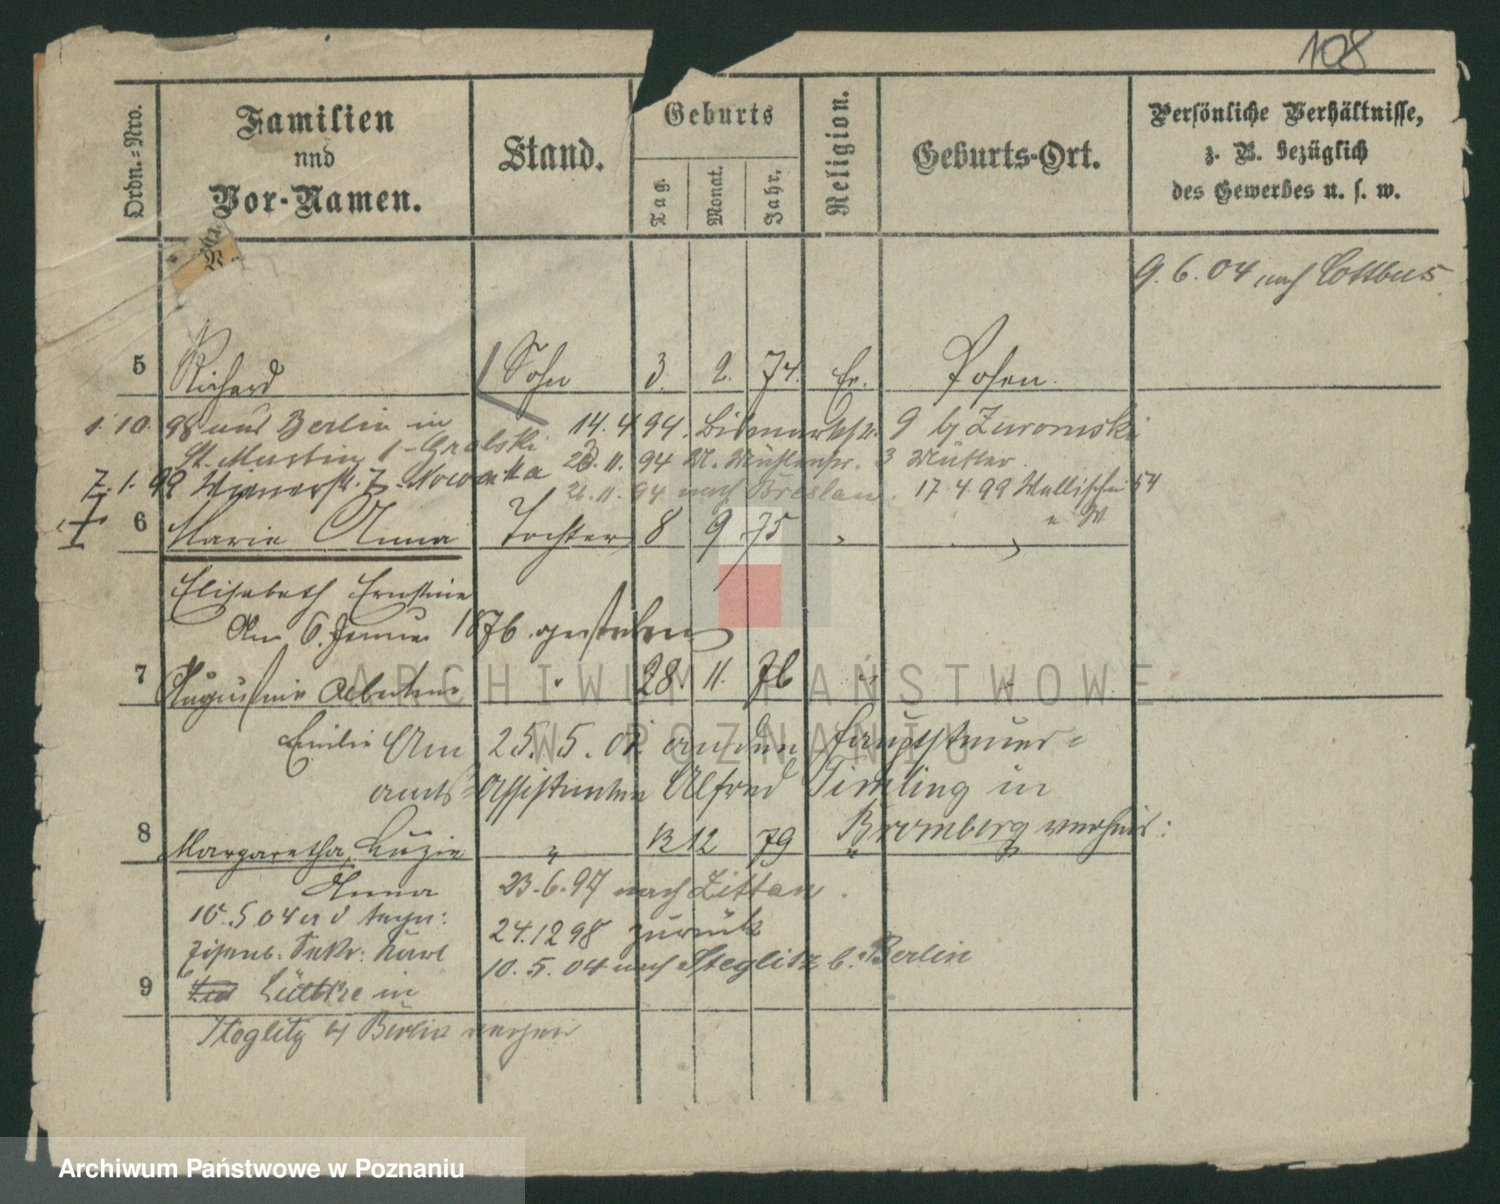 108
Ordn.=Nro.
Familien
und
Vor-Namen.
Stand.
Geburts
Tag.
Monat.
Jahr.
Religion.
Geburts-Ort.
Persönliche Verhältnisse,
z. B. bezüglich
des Gewerbes u. s. w.
9. 6. 04 nach Cottbus
5 Richard Sohn 3. 2. 74. Ev. Posen.
1. 10. 98 aus Berlin in 14. 4 94. Bismarkstr. 9 b/ Zuromski
St. Martin 1 - Gralski 23. 11. 94 Mühlenstr. 3 Müller
7. 1. 99 Wienerstr. 7 Nowacka 26. 11. 94 nach Breslau. 17 4 99 Wallischei 54
6 Marie Anna Tochter 8 9 75 " "
Elisabeth Ernstine
Am 6. Januar 1876 gestorben
7 Augustine Albertine " 28. 11. 76 " "
Emilie Am 25. 5. 01 an den Hauptsteuer=
amts Assistenten Alfred Timling in
Bromberg verheir:
8 Margaretha, Luzie " 13 12 79 " "
Anna 23. 6. 97 nach Zittau.
10. 5 04 a d
24. 12 98 zurück
Eisenb. Sekr. Karl
10. 5. 04 nach Steglitz b. Berlin
9 Lüttke in
Steglitz b/ Berlin
ARCHIWUM PAŃSTWOWE
W POZNANIU
Archiwum Państwowe w Poznaniu